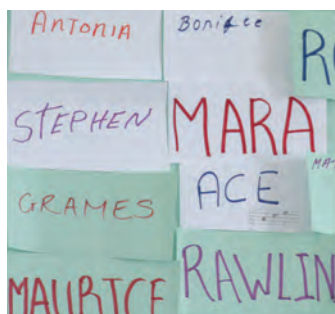 ANTONIA
Boniface
STEPHEN
MARA
GRAMES
ACE
MAURICE
RAWLIN